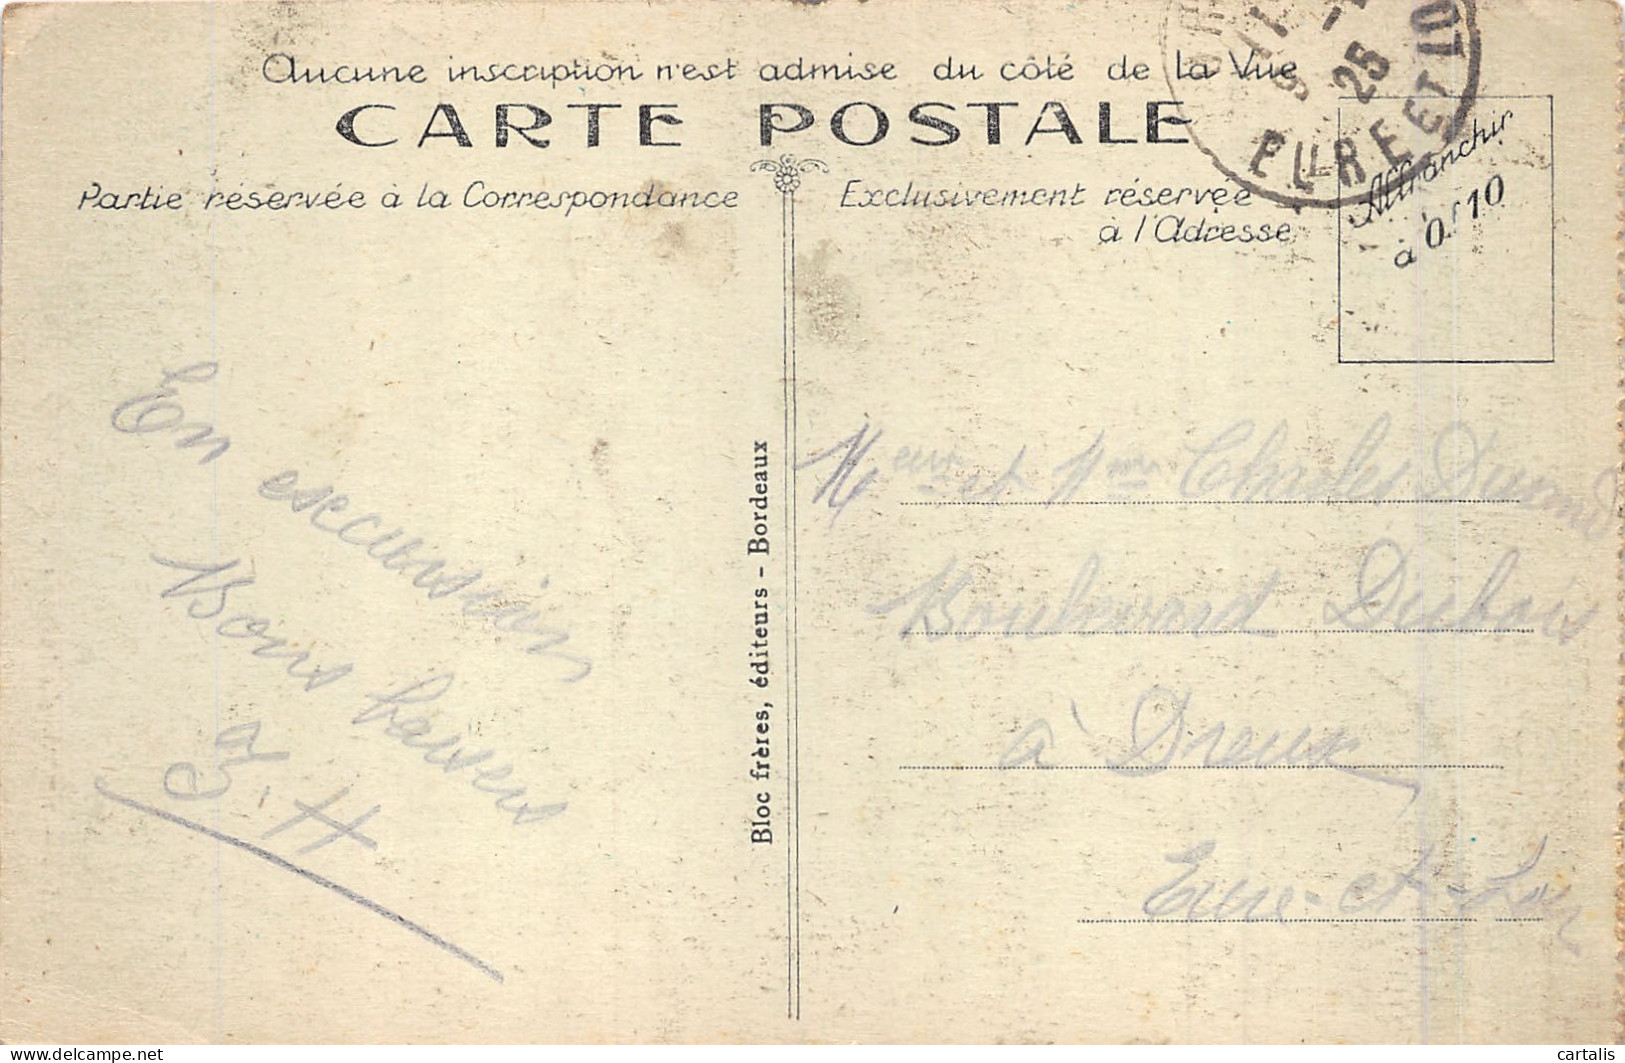 Aucune inscription n'est admise du côté de la Vue
CARTE POSTALE
Partie réservée à la Correspondance
Exclusivement réservée
à l'Adresse
Affranchir
à 0.f10
25
EURE ET LOI
En esccursion
Bons baisers
H
Bloc frères, éditeurs - Bordeaux
Meur et Mme Charles Durand
Boulevard Dubois
à Dreux
Eure-et-Loir
cartalis